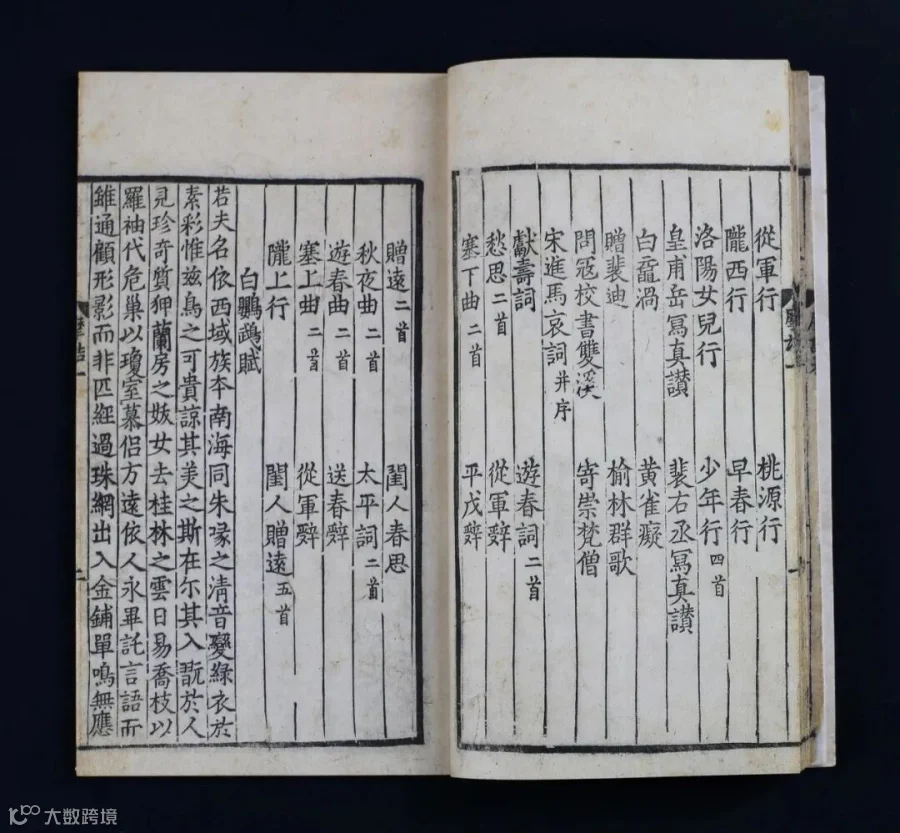 從軍行　桃源行
隴西行　早春行
洛陽女兒行　少年行四首
皇甫岳冩真讃　裴右丞冩真讃
白黿渦　黄雀癡
贈裴迪　榆林群歌
問宼校書雙溪　寄崇梵僧
宋進馬哀詞并序
獻壽詞　遊春詞二首
愁思二首　從軍辤
塞下曲二首　平戎辤
贈遠二首　閨人春思
秋夜曲二首　太平詞二首
遊春曲二首　送春辤
塞上曲二首　從軍辤
隴上行　閨人贈遠五首
白鸚鵡賦
若夫名依西域族本南海同朱喙之清音變綠衣於
素彩惟兹鳥之可貴諒其美之斯在尓其入翫於人
見珍奇質狎蘭房之妓女去桂林之雲日易喬枝以
羅袖代危巢以瓊室慕侣方遠依人永畢託言語而
雖通顧形影而非匹經過珠網出入金鋪單鳴無應
摩詰一
二
大数跨境